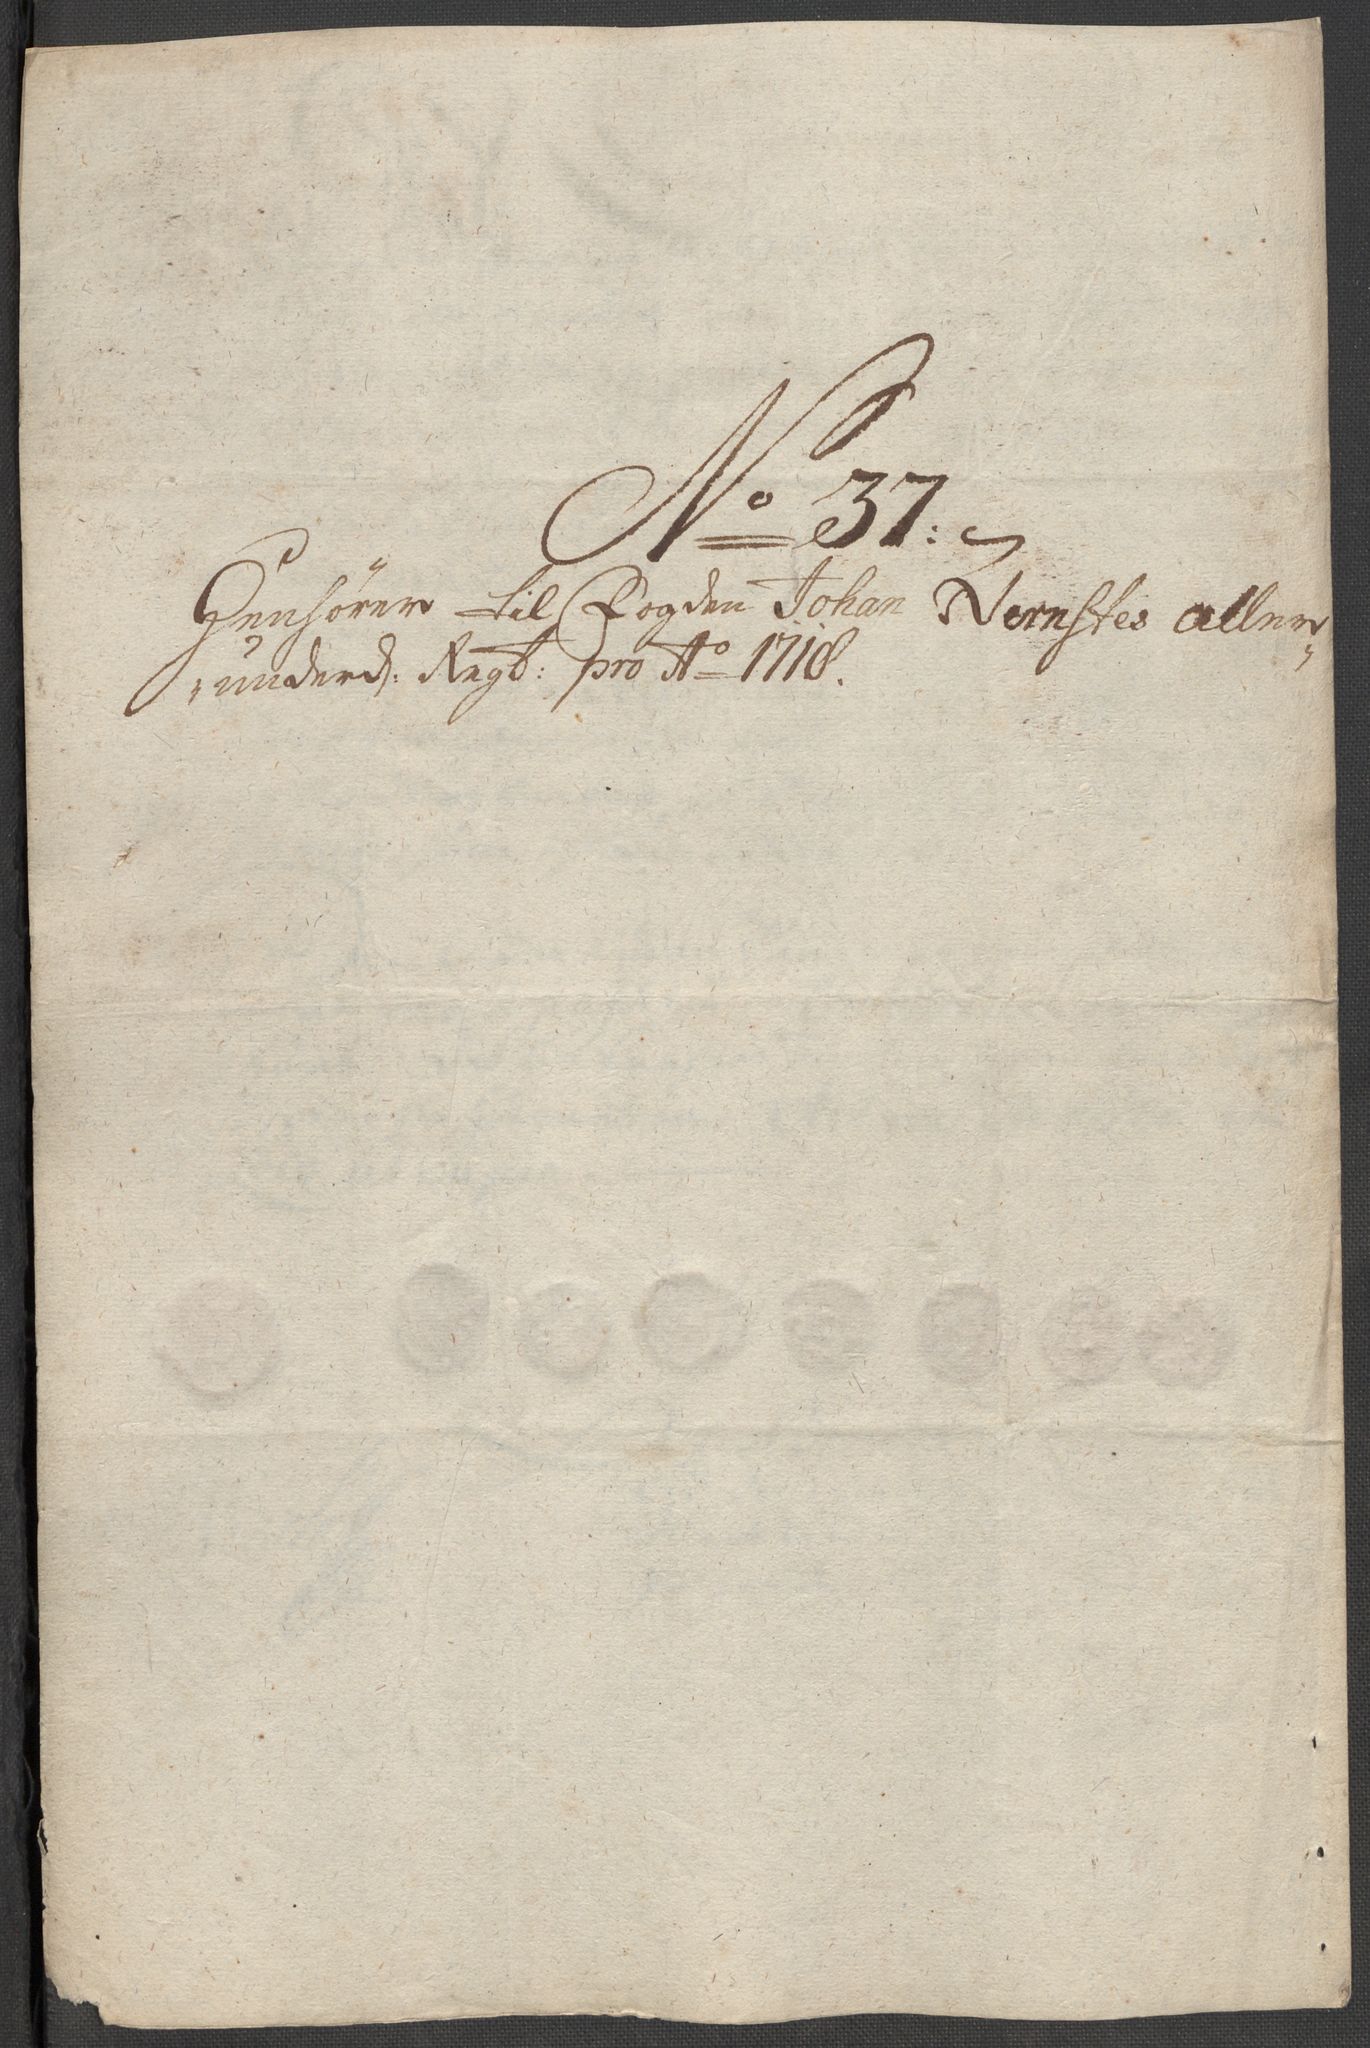 No 37:
Henhörer til Fogden Johan Vernstes aller
underd: Regb: pro Ao 1718.